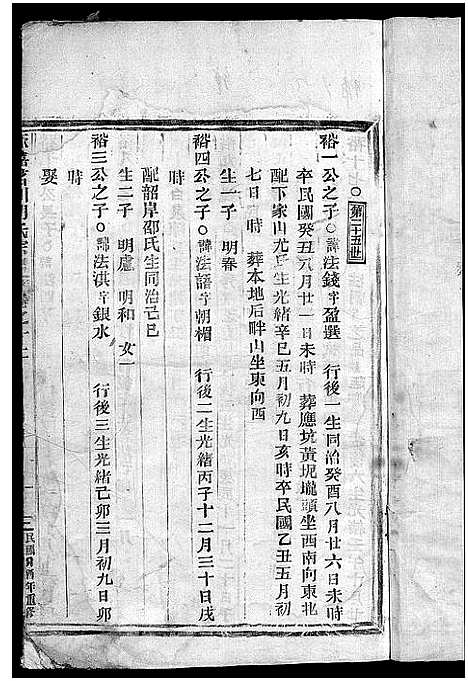 第二十五世
裕一公之子○諱法錢字盈選 行後一生同治癸酉八月廿六日未時
卒民國癸丑八月廿一日未時 葬應坑黃坭壠頭坐西南向東北
配下家山尤氏生光緒辛巳五月初九日亥時卒民國乙丑五月初
七日 時 葬本地后畔山坐東向西
生一子 明春
裕四公之子○諱法語字朝楣 行後二生光緒丙子十二月三十日戌
時
配韶岸邵氏生同治己巳
生二子 明處 明和 女一
裕三公之子○諱法淇字銀水 行後三生光緒己卯三月初九日卯
時
娶
民國 酉年重修